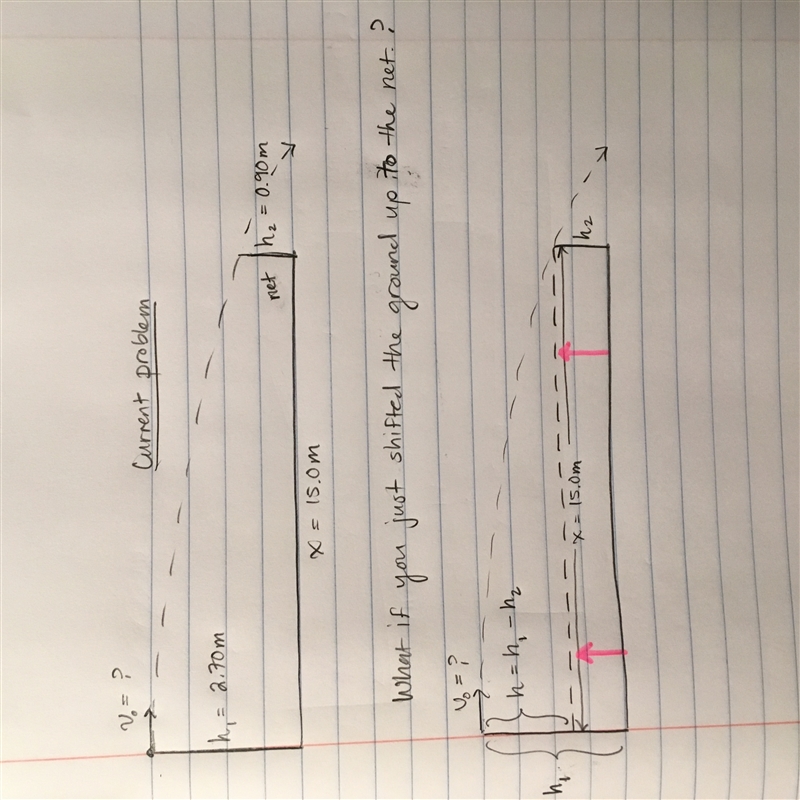 Current problem
v₀ = ?
h₁ = 2.70m
net
h₂ = 0.90m
x = 15.0m
What if you just shifted the ground up to the net?
v₀ = ?
h = h₁ - h₂
h₁
x = 15.0m
h₂